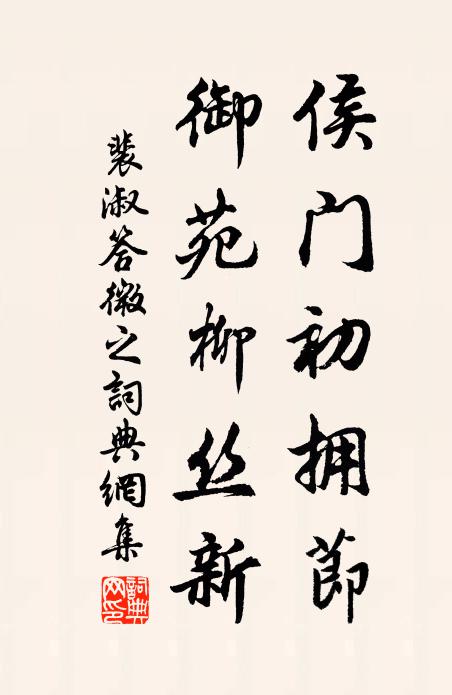 侯门初拥节
御苑柳丝新
裴淑答微之詞典網集
詞典网印